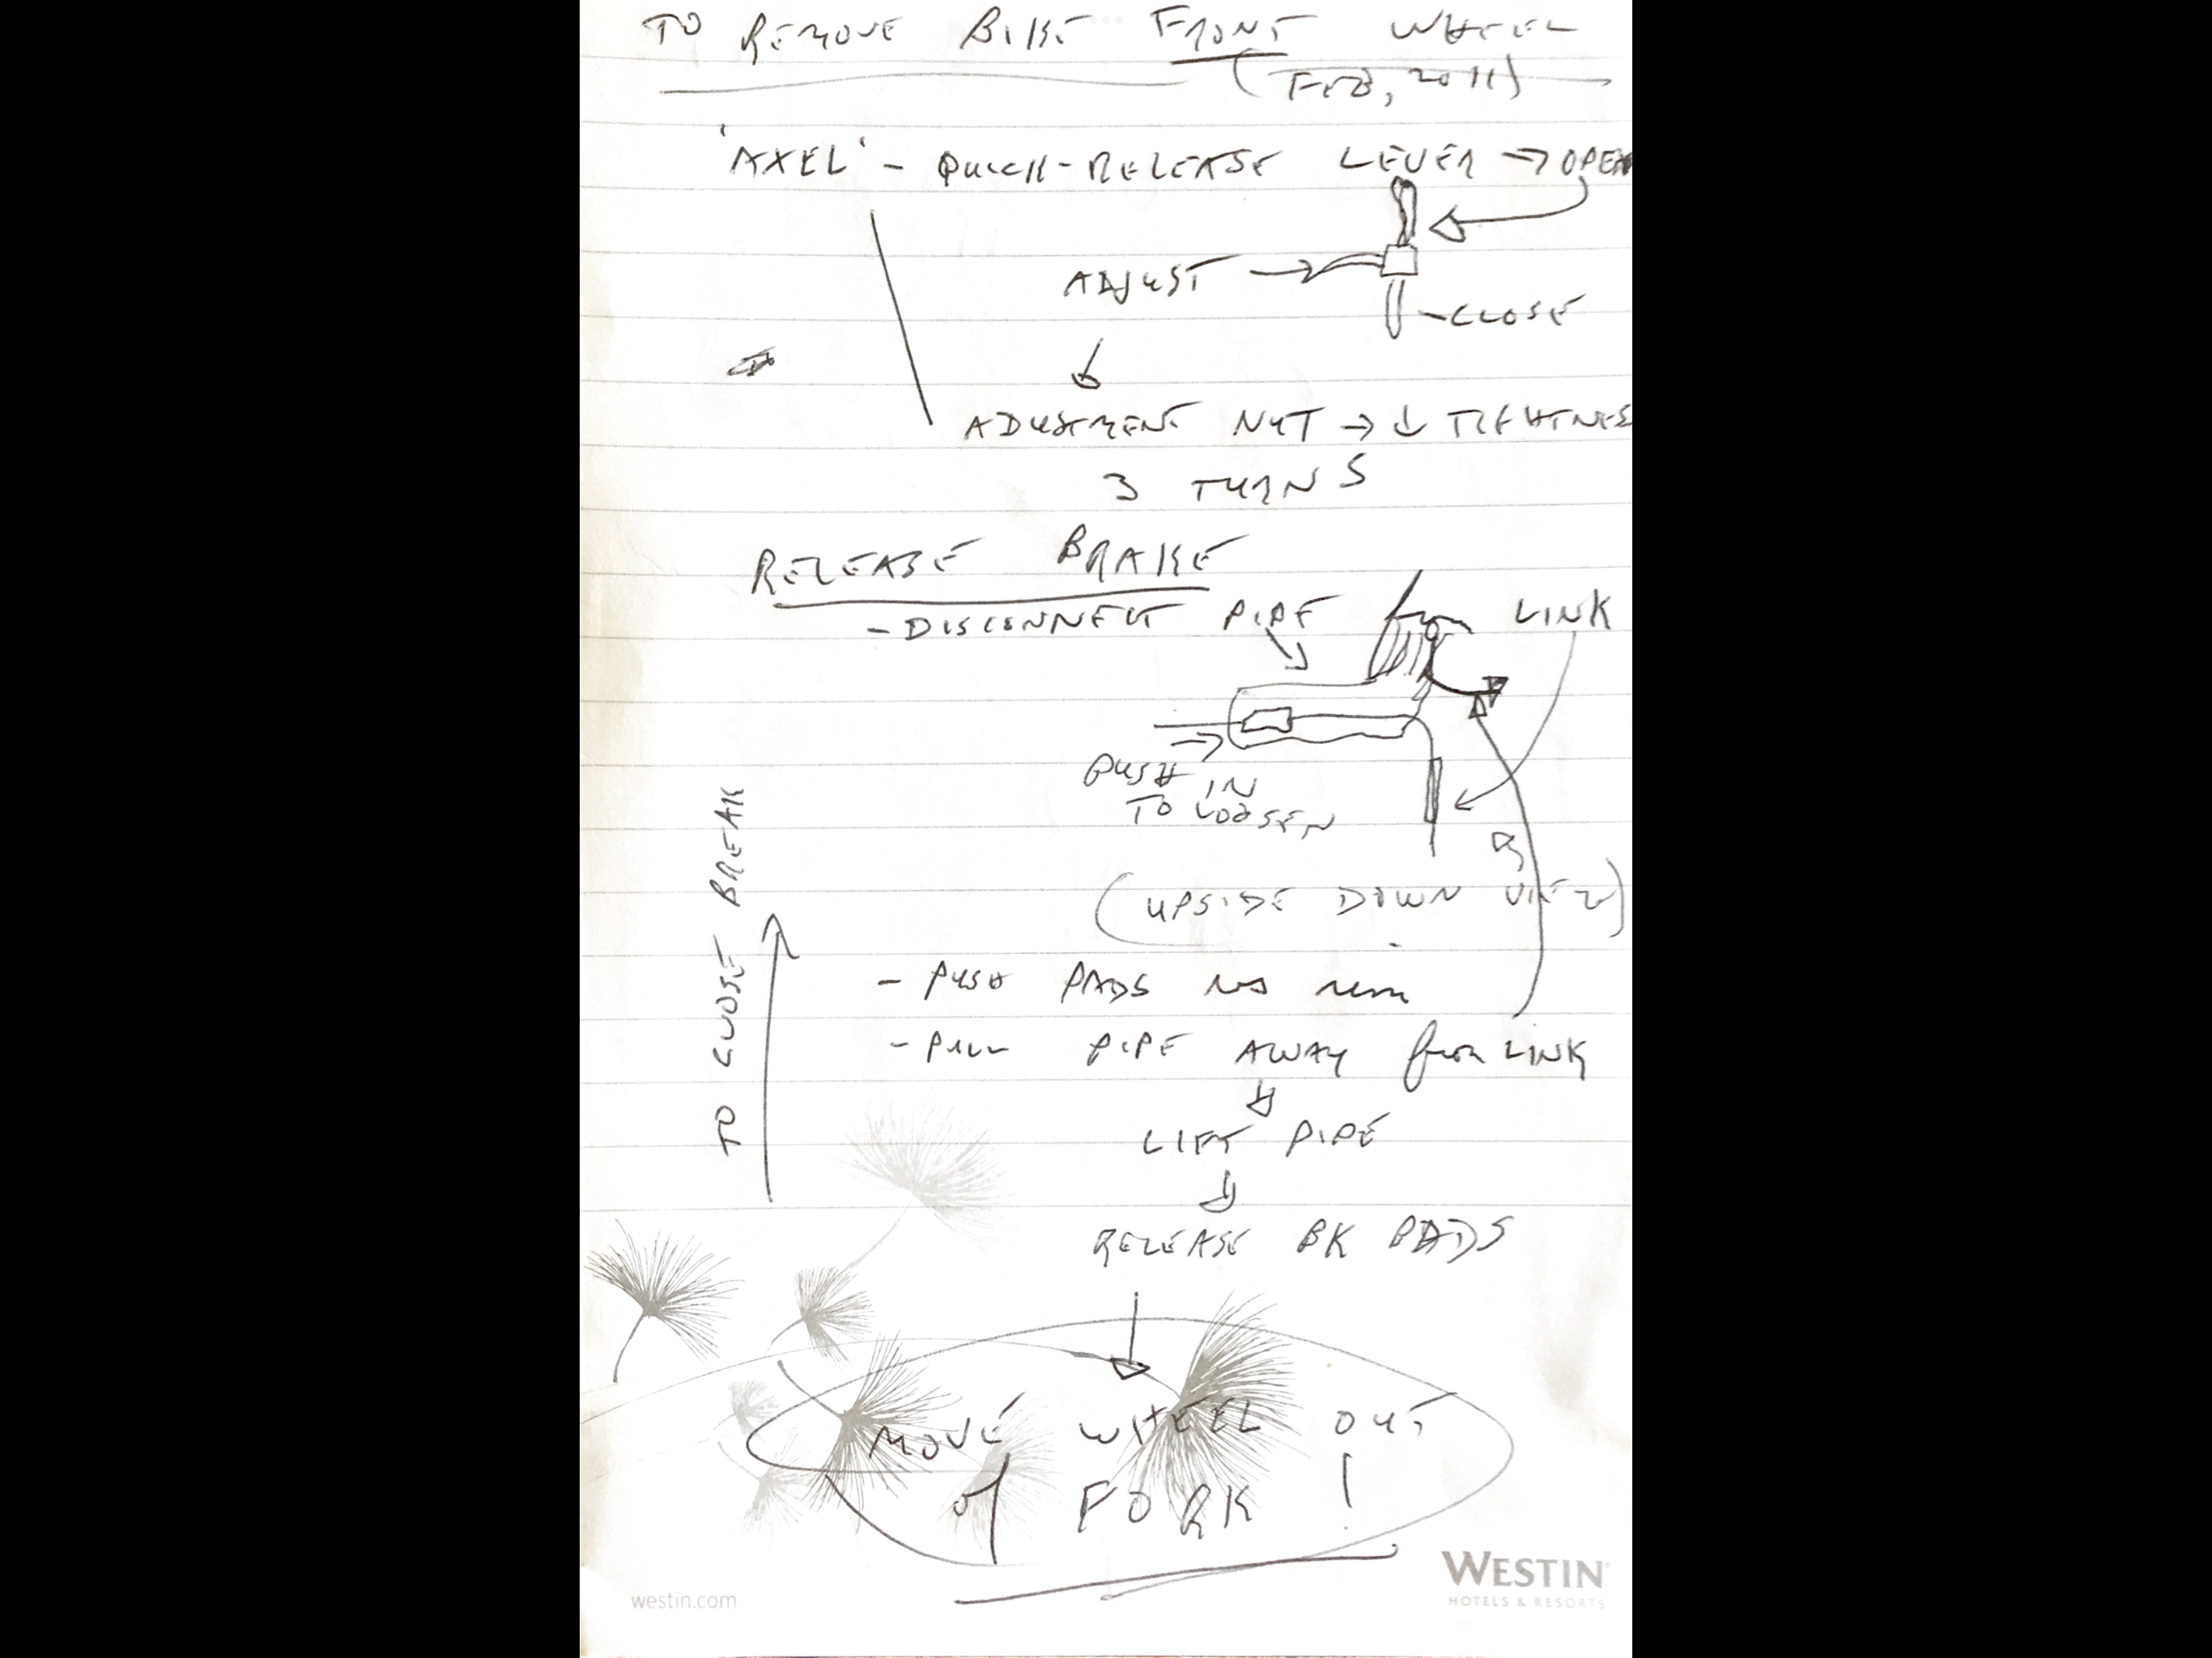 TO REMOVE BIKE FRONT WHEEL
(FEB, 2011)
'AXEL' - QUICK-RELEASE LEVER → OPEN
ADJUST →
- CLOSE
ADJUSTMENT NUT → ↓ TIGHTNES
3 TURNS
RELEASE BRAKE
- DISCONNECT PIPE
LINK
PUSH IN
TO LOOSEN
(UPSIDE DOWN VIEW)
- PUSH PADS rim
- PULL PIPE AWAY from LINK
LIFT PIPE
RELEASE BK PADS
MOVE WHEEL OUT
of FORK !
TO CLOSE BREAK
westin.com
WESTIN
HOTELS & RESORTS